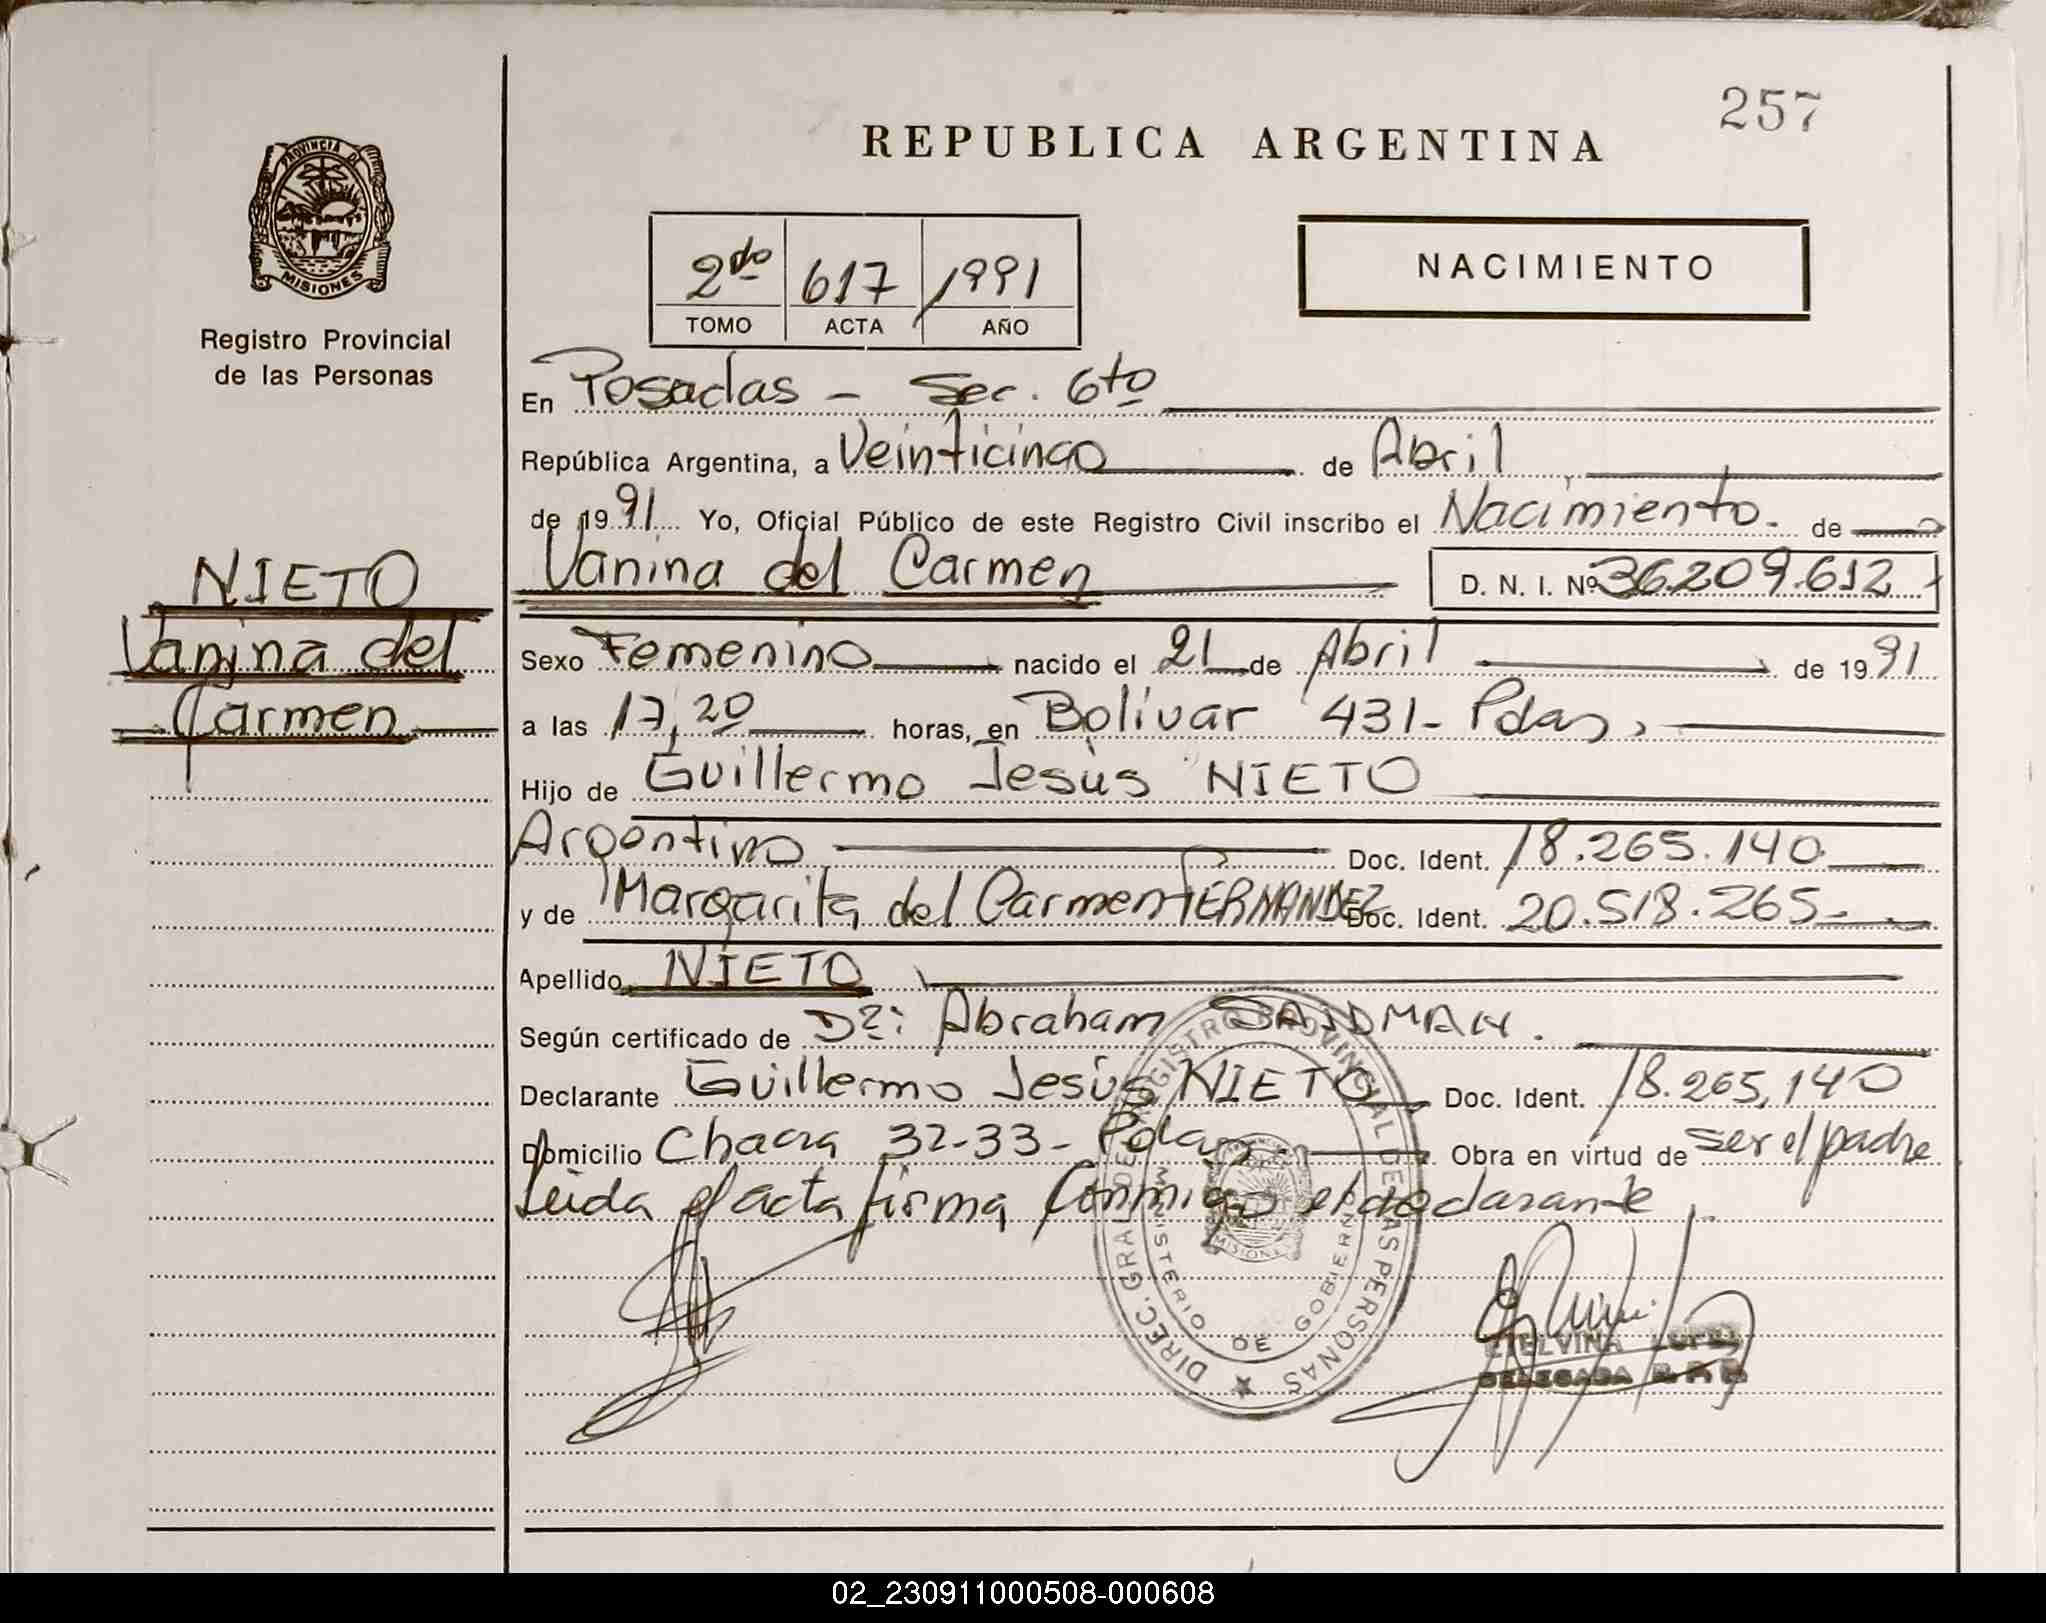 257
REPUBLICA ARGENTINA
PROVINCIA DE
MISIONES
Registro Provincial
de las Personas
2do 617 1991
TOMO ACTA AÑO
NACIMIENTO
En Posadas - Sec. 6to
República Argentina, a Veinticinco de Abril
de 1991 Yo, Oficial Público de este Registro Civil inscribo el Nacimiento. de
NIETO
Vanina del
Carmen
Vanina del Carmen D. N. I. Nº 36.209.612
Sexo Femenino nacido el 21 de Abril de 1991
a las 17,20 horas, en Bolívar 431- Pdas,
Hijo de Guillermo Jesús NIETO
Argentino Doc. Ident. 18.265.140
y de Margarita del Carmen FERNANDEZ Doc. Ident. 20.518.265
Apellido NIETO
Según certificado de Abraham
Declarante Guillermo Jesús NIETO Doc. Ident. 18.265,140
Domicilio Chacra 32-33- Pdas Obra en virtud de ser el padre
Leida el acta firma Conmigo el declarante
DIREC. GRAL. DE REGISTRO PROVINCIAL DE LAS PERSONAS
MINISTERIO DE GOBIERNO
MISIONES
ETELVINA LOPEZ
DELEGADA R. P. P.
02_230911000508-000608